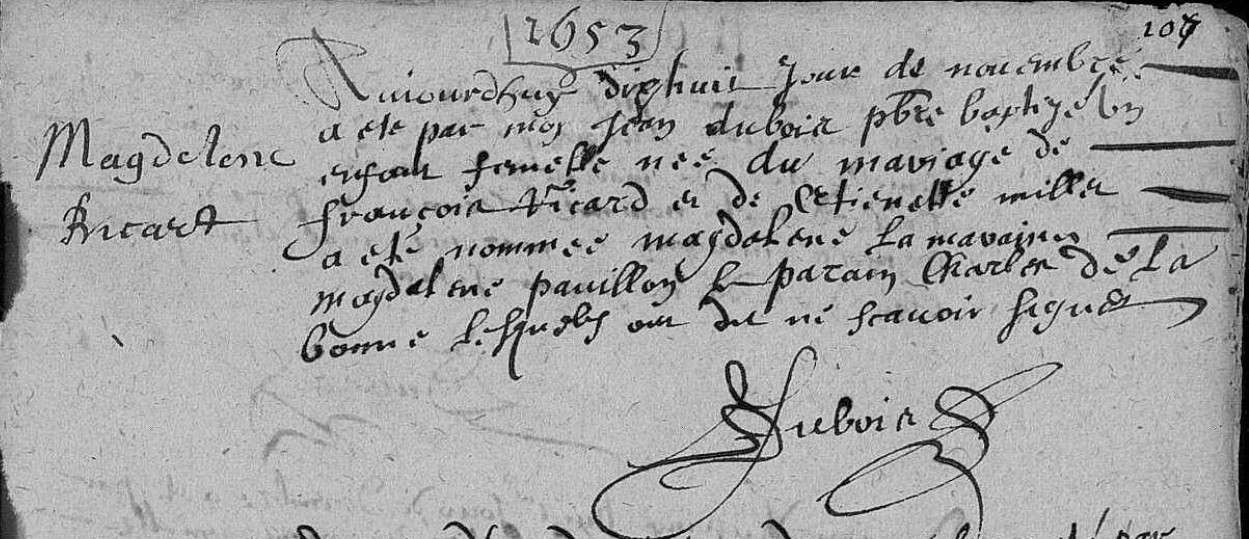 1653
107
Magdelene
Ricard
Auiourdhuy dixhuit jour de novembre
a ete par moy Jean dubois pbre baptizé un
enfant femelle née du mariage de
françois Ricard et de Estienette millet
a eté nommée magdelene La maraine
magdelene pavillon Le parain Charles de La
bonne Lesquels ont dit ne scavoir signer
Dubois